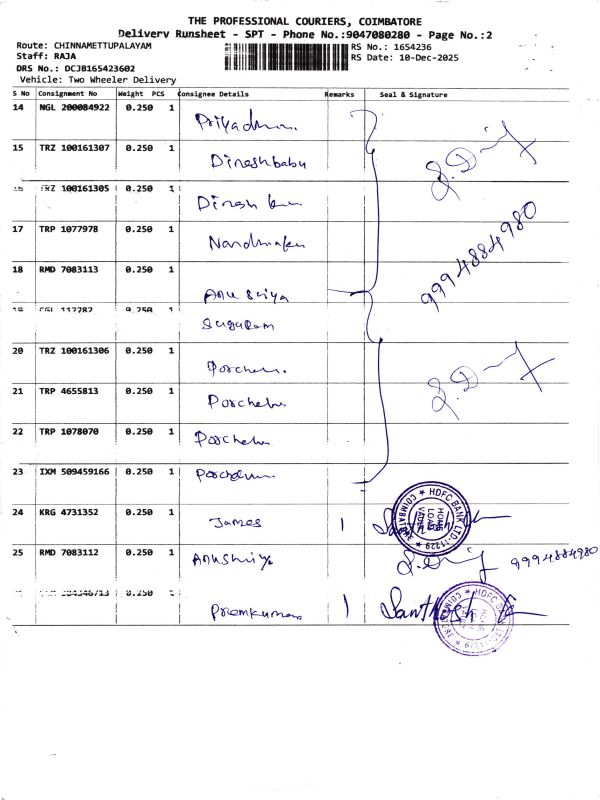 THE PROFESSIONAL COURIERS, COIMBATORE
Delivery Runsheet - SPT - Phone No.:9047080280 - Page No.:2
Route: CHINNAMETTUPALAYAM
Staff: RAJA
DRS No.: DCJB165423602
Vehicle: Two Wheeler Delivery
RS No.: 1654236
RS Date: 10-Dec-2025
S No Consignment No Weight PCS Consignee Details Remarks Seal & Signature
14 NGL 200084922 0.250 1
15 TRZ 100161307 0.250 1 Dineshbabu
TRZ 100161305 0.250 1 Dinesh
17 TRP 1077978 0.250 1
18 RMD 7083113 0.250 1 Anu Sriya
9994884980
0.250 1 Sugaram
20 TRZ 100161306 0.250 1
21 TRP 4655813 0.250 1
22 TRP 1078070 0.250 1
23 IXM 509459166 0.250 1
24 KRG 4731352 0.250 1 James 1
HDFC BANK LTD-11229 ★ COIMBATORE ★
HOME LOAN
25 RMD 7083112 0.250 1 Anushiya 9994884980
0.250 1 Premkumar 1 Santhosh
HDFC BANK LTD